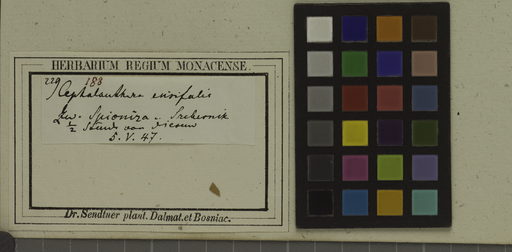 HERBARIUM REGIUM MONACENSE.
229 188
Cephalanthera ensifolia
Zw. Spioniza u. Srebernik
1/2 Stunde von
5. V. 47.
Dr. Sendtner plant. Dalmat. et Bosniac.